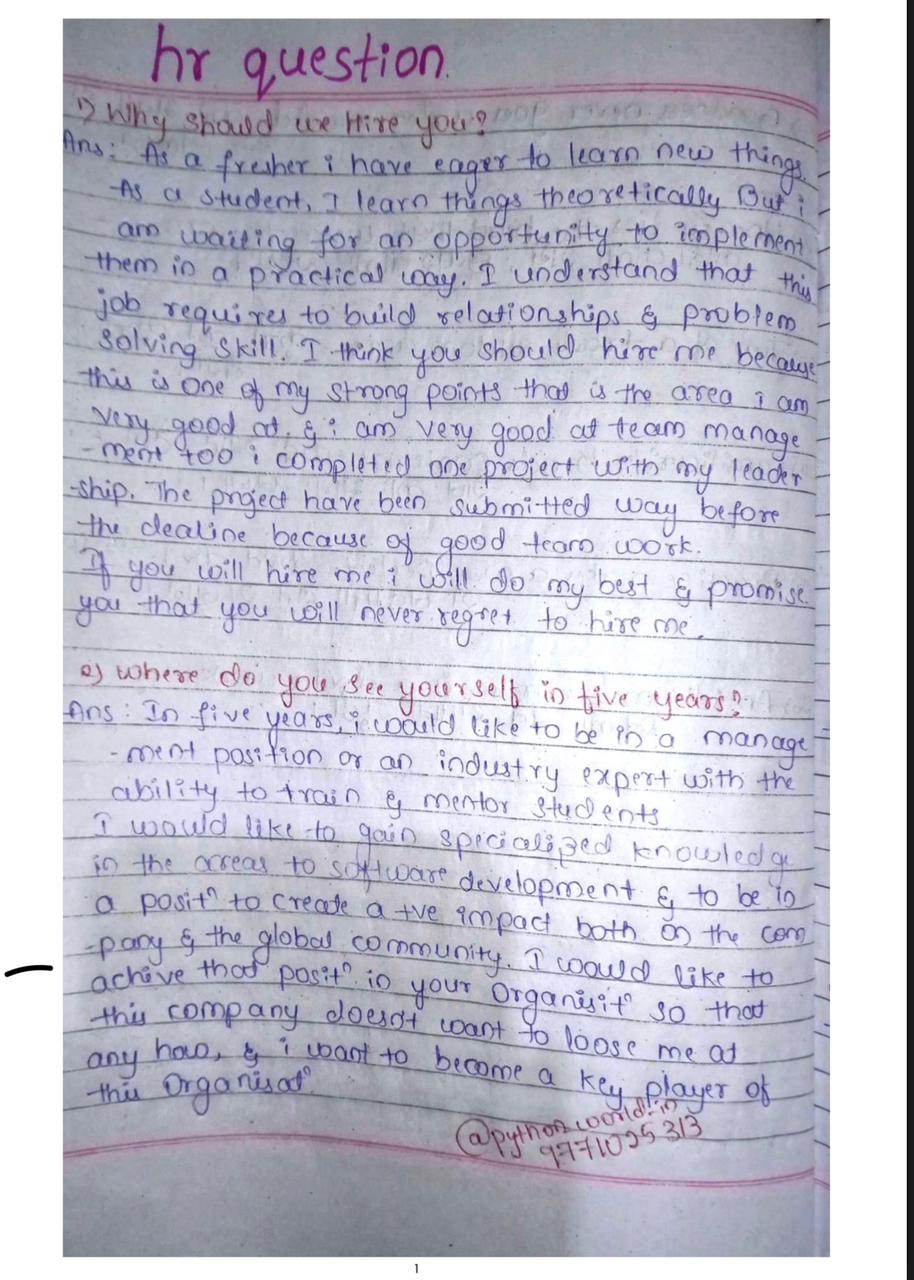 hr question.
1) Why should we Hire you?
Ans: As a fresher i have eager to learn new things.
As a student, I learn things theoretically But i
am waiting for an opportunity to implement
them in a practical way. I understand that this
job requires to build relationships & problem
solving skill. I think you should hire me because
this is one of my strong points that is the area i am
very good at, & i am very good at team manage
-ment too i completed one project with my leader
-ship. The project have been submitted way before
the dealine because of good team work.
If you will hire me i will do my best & promise
you that you will never regret to hire me.
2) Where do you see yourself in five years?
Ans: In five years, i would like to be in a manage
-ment position or an industry expert with the
ability to train & mentor students
I would like to gain specialized knowledge
in the areas to software development & to be in
a positn to create a +ve impact both on the com
-pany & the global community. I would like to
achive that positn in your Organisitn so that
this company doesn't want to loose me at
any how, & i want to become a key player of
this Organisatn
@python world.in
9771025313
1